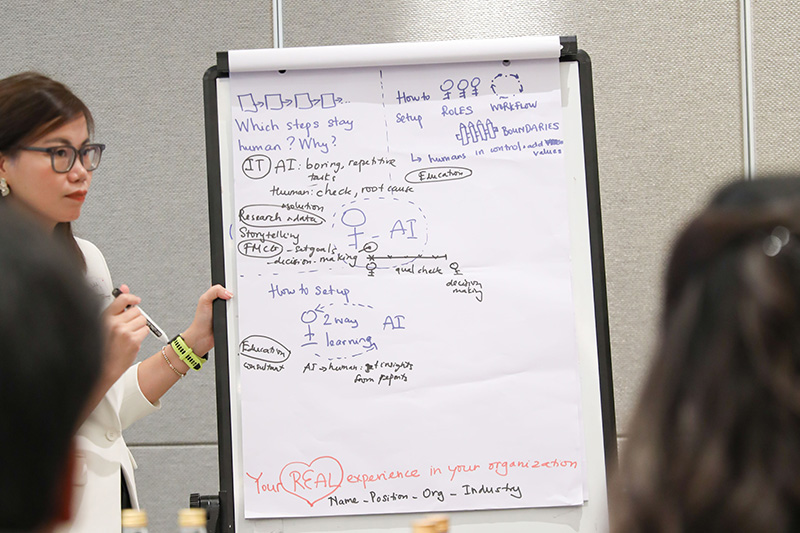 Which steps stay
human? Why?
IT AI: boring, repetitive
task
Human: check, root cause
solution
Research data
Storytelling
FMCG - set goals
- decision-making
AI
qual check
decision
making
How to setup
2 way
learning
AI
Education
consultant
AI → human: get insights
from reports
How to
setup
ROLES
WORKFLOW
BOUNDARIES
↳ humans in control + add
values
Education
Your REAL experience in your organization
Name - Position - Org - Industry